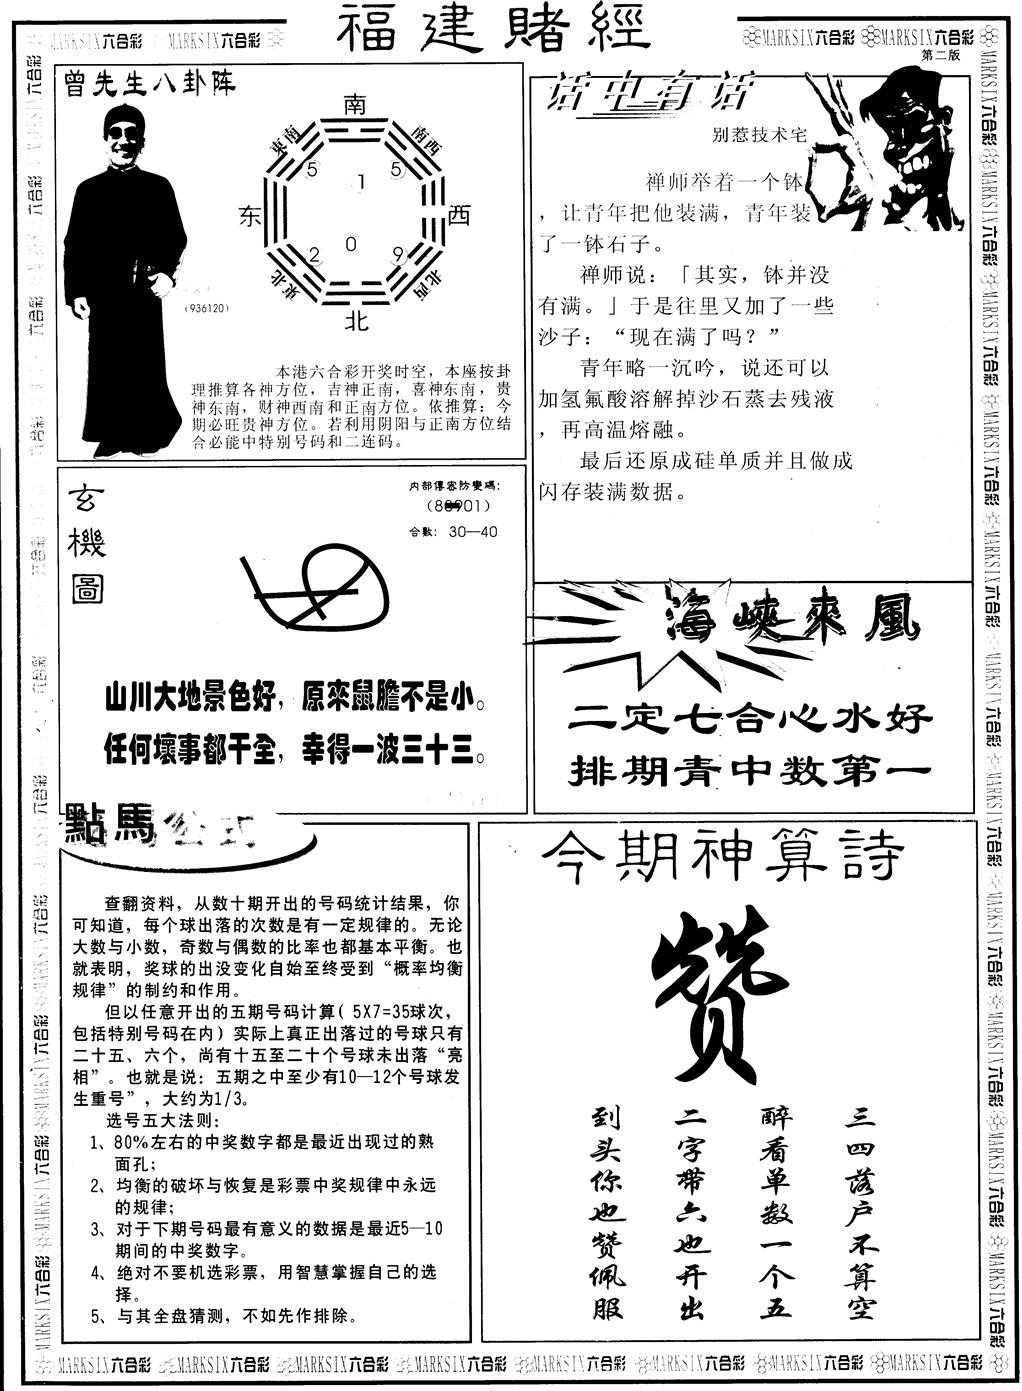 福建賭經
MARKSIX六合彩 MARKSIX六合彩
MARKSIX六合彩 MARKSIX六合彩
第二版
曾先生八卦阵
南
東南
南西
5
1
5
东
西
2
0
9
東北
北西
北
(936120)
本港六合彩开奖时空，本座按卦
理推算各神方位，吉神正南，喜神东南，贵
神东南，财神西南和正南方位。依推算：今
期必旺贵神方位。若利用阴阳与正南方位结
合必能中特别号码和二连码。
话中有话
别惹技术宅
禅师举着一个钵
，让青年把他装满，青年装
了一钵石子。
禅师说：「其实，钵并没
有满。」于是往里又加了一些
沙子：“现在满了吗？”
青年略一沉吟，说还可以
加氢氟酸溶解掉沙石蒸去残液
，再高温熔融。
最后还原成硅单质并且做成
闪存装满数据。
玄機圖
内部傳密防變碼：
合數：30—40
山川大地景色好，原來鼠膽不是小。
任何壞事都干全，幸得一波三十三。
海峽來風
二定七合心水好
排期青中数第一
點馬公式
查翻资料，从数十期开出的号码统计结果，你
可知道，每个球出落的次数是有一定规律的。无论
大数与小数，奇数与偶数的比率也都基本平衡。也
就表明，奖球的出没变化自始至终受到“概率均衡
规律”的制约和作用。
但以任意开出的五期号码计算(5X7=35球次，
包括特别号码在内)实际上真正出落过的号球只有
二十五、六个，尚有十五至二十个号球未出落“亮
相”。也就是说：五期之中至少有10—12个号球发
生重号”，大约为1/3。
选号五大法则：
1、80%左右的中奖数字都是最近出现过的熟
面孔；
2、均衡的破坏与恢复是彩票中奖规律中永远
的规律；
3、对于下期号码最有意义的数据是最近5—10
期间的中奖数字。
4、绝对不要机选彩票，用智慧掌握自己的选
择。
5、与其全盘猜测，不如先作排除。
今期神算詩
赞
三四落户不算空
醉看单数一个五
二字带六也开出
到头你也赞佩服
MARKSIX六合彩 MARKSIX六合彩 MARKSIX六合彩 MARKSIX六合彩 MARKSIX六合彩 MARKSIX六合彩 MARKSIX六合彩 MARKSIX六合彩